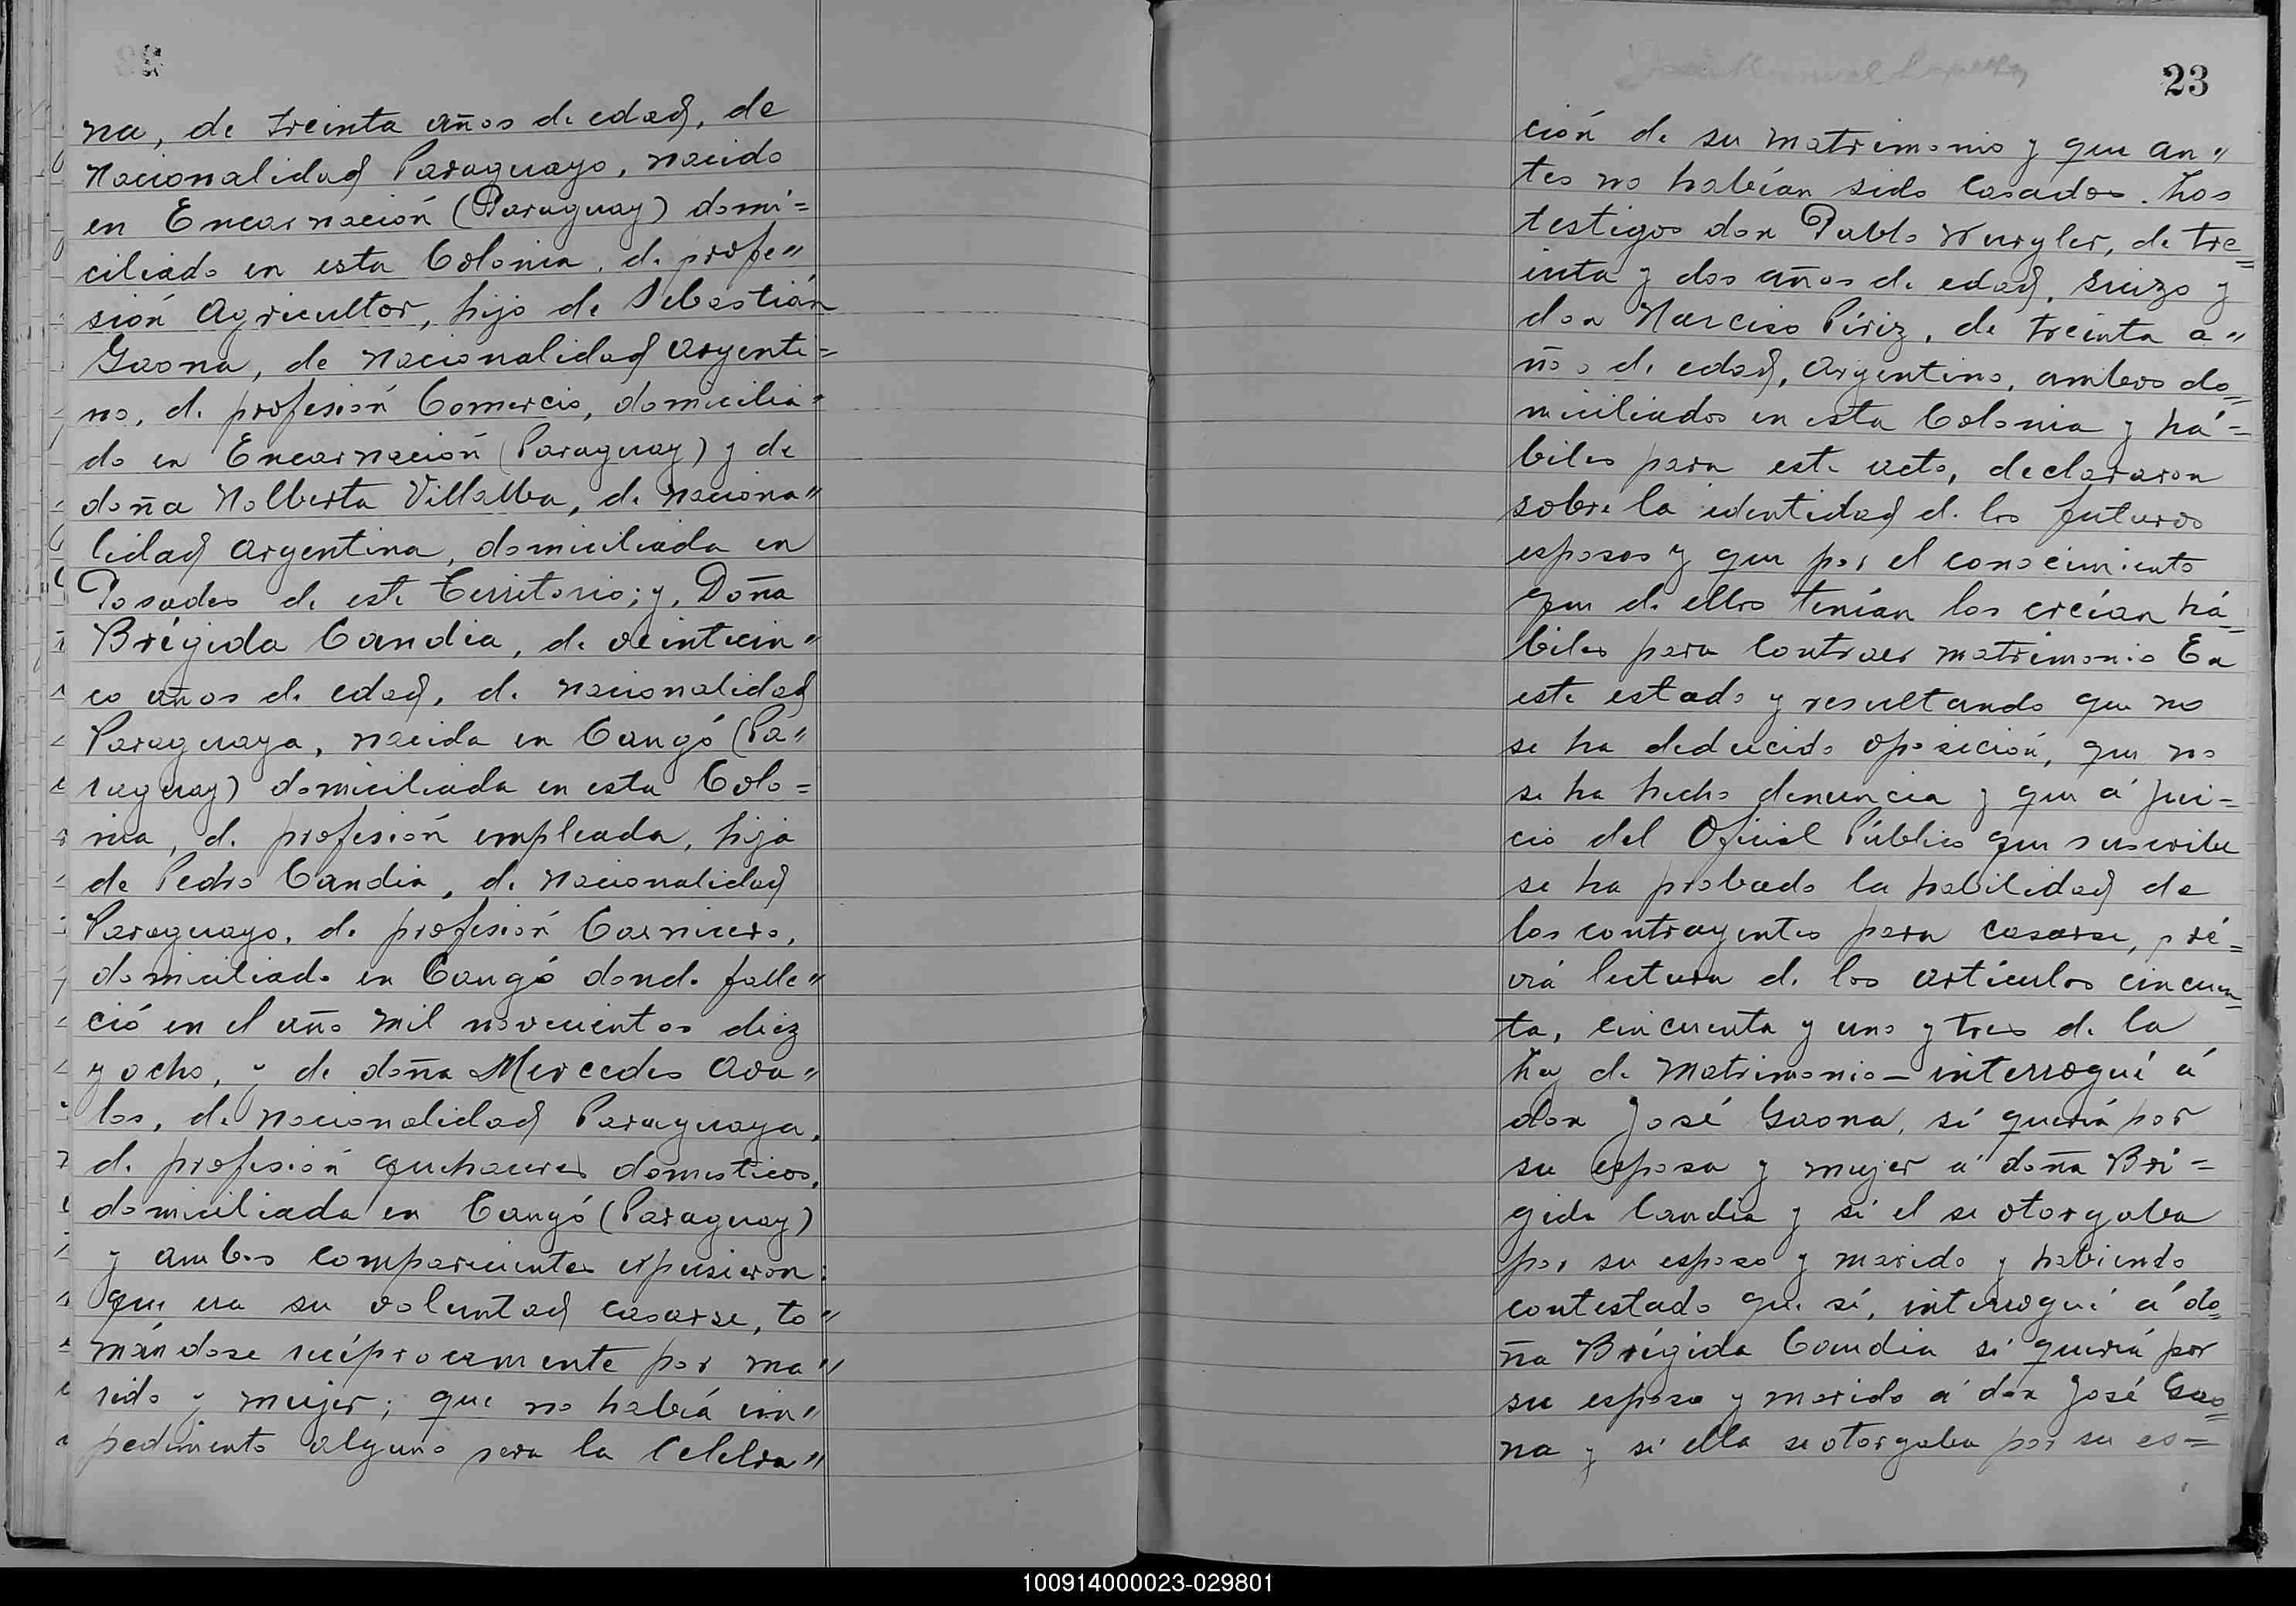 na, de treinta años de edad, de
Nacionalidad Paraguayo, nacido
en Encarnación (Paraguay) domi=
ciliado en esta Colonia, de profe"
sión Agricultor, hijo de Sebastián
Gaona, de Nacionalidad Argenti=
no, de profesión Comercio, domicilia"
do en Encarnación (Paraguay) y de
doña Nolberta Villalba, de naciona"
lidad Argentina, domiciliada en
Posadas de este Territorio; y, Doña
Brígida Candia, de veinticin"
co años de edad, de nacionalidad
Paraguaya, nacida en Cangó (Pa"
raguay) domiciliada en esta Colo=
nia, de profesión empleada, hija
de Pedro Candia, de Nacionalidad
Paraguayo, de profesión Carnicero,
domiciliado en Cangó donde falle"
ció en el año mil novecientos diez
y ocho, y de doña Mercedes Ava"
los, de nacionalidad Paraguaya,
de profesión quehaceres domesticos,
domiciliada en Cangó (Paraguay)
y ambos comparecientes expusieron:
que era su voluntad casarse, to"
mándose recíprocamente por ma"
rido y mujer; que no habiá im"
pedimento alguno para la Celebra"
23
ción de su matrimonio y que an"
tes no habían sido Casados. Los
testigos don Pablo Wurgler, de tre=
inta y dos años de edad, suizo y
don Narciso Píriz, de treinta a"
ños de edad, Argentino, ambos do=
miciliados en esta Colonia y há=
biles para este acto, declararon
sobre la identidad de los futuros
esposos y que por el conocimiento
que de ellos tenían los creían há=
biles para Contraer matrimonio En
este estado y resultando que no
se ha deducido oposición, que no
se ha hecho denuncia y que á jui=
cio del Oficial Público que suscribe
se ha probado la habilidad de
los contrayentes para casarse, pré=
viá lectura de los artículos cincuen=
ta, cincuenta y uno y tres de la
Ley de Matrimonio - interrogué á
don José Gaona, sí queriá por
su esposa y mujer á doña Brí=
gida Candia y sí el se otorgaba
por su esposo y marido y habiendo
contestado que sí, interrogué á do=
ña Brígida Candia sí queriá por
su esposo y marido á don José Gao=
na y sí ella se otorgaba por su es=
100914000023-029801